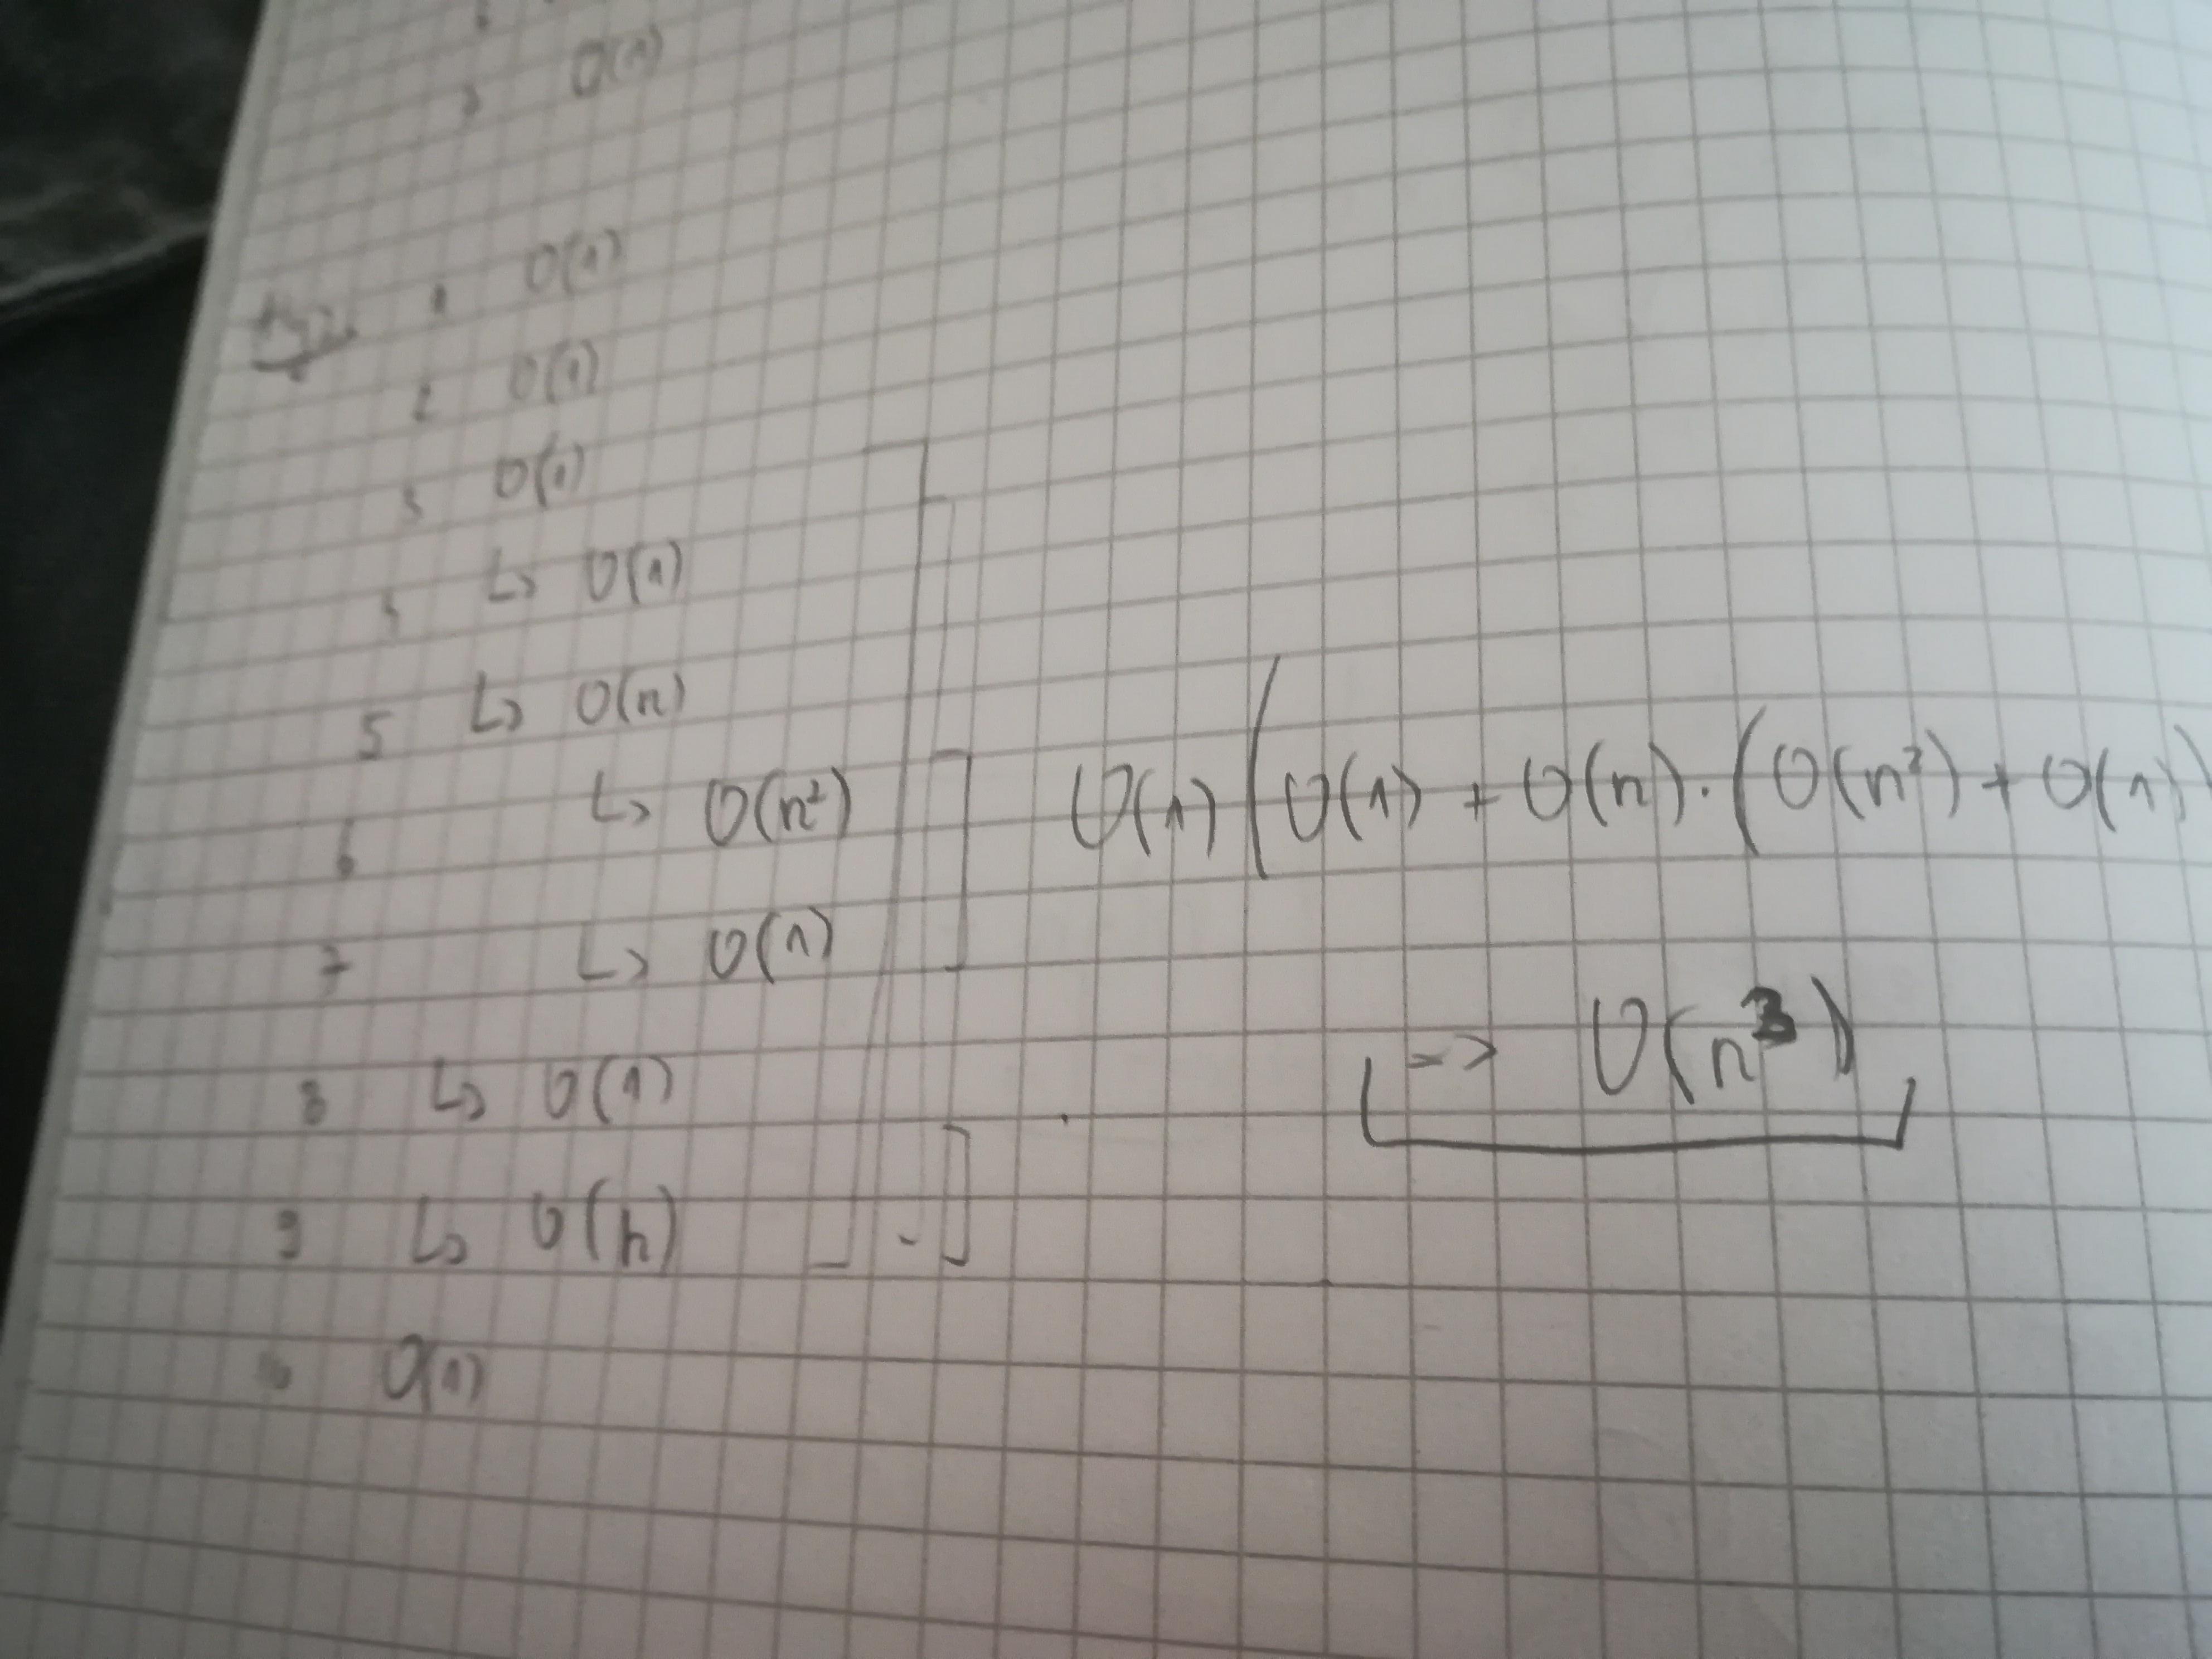 O(1)
1 O(1)
2 O(1)
3 O(1)
↳ O(1)
5 ↳ O(n)
6 ↳ O(n²)
7 ↳ O(1)
8 ↳ O(1)
9 ↳ O(n)
10 O(1)
O(1) (O(1) + O(n) · (O(n²) + O(1))
=> O(n³)